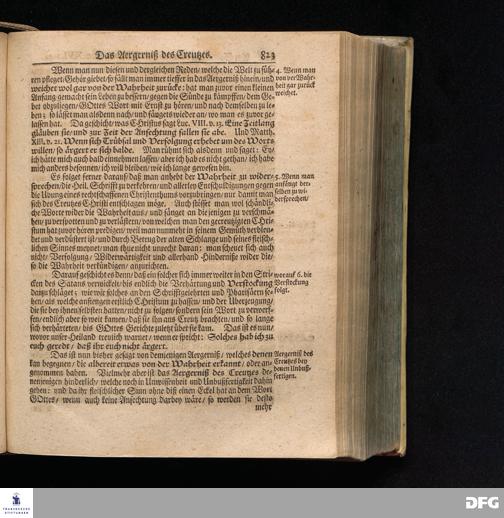 Das Aergerniß des Creutzes. 823
Wenn man nun diesen und dergleichen Reden/ welche die Welt zu füh-
ren pfleget/ Gehör giebet/ so fällt man immer tieffer in das Aergerniß hinein/ und
weichet wol gar von der Wahrheit zurücke: hat man zuvor einen kleinen
Anfang gemacht sein Leben zu bessern/ gegen die Sünde zu kämpffen/ dem Ge-
bet obzuliegen/ GOttes Wort mit Ernst zu hören/ und nach demselben zu le-
ben; so lässet man alsdenn nach/ und säugets wieder an/ wo man es zuvor ge-
lassen hat. Da geschicht/ was Christus sagt Luc. VIII. v. 13. Eine Zeitlang
gläuben sie/ und zur Zeit der Anfechtung fallen sie abe. Und Matth.
XIII. v. 21. Wenn sich Trübsal und Verfolgung erhebet um des Worts
willen/ so ärgert er sich balde. Man rühmt sich alsdenn und saget: Ey/
ich hätte mich auch bald einnehmen lassen/ aber ich hab es nicht gethan/ ich habe
mich anders besonnen/ ich wil bleiben/ wie ich lange gewesen bin.
4. Wenn man
von der Wahr-
heit gar zurück
weichet.
Es folget ferner daraus/ daß man anhebt der Wahrheit zu wider-
sprechen/ die Heil. Schrifft zu verkehren/ und allerley Entschuldigungen gegen
die Ubung eines rechtschaffenen Christenthums vorzubringen/ nur damit man
sich des Creutzes Christi entschlagen möge. Auch stösset man wol schändli-
che Worte wider die Wahrheit aus/ und fänget an diejenigen zu verschmä-
hen/ zu verspotten und zu verlästern/ von welchen man den gecreutzigten CHri-
stum hat zuvor hören predigen/ weil man nunmehr in seinem Gemüth verblen-
det und verdüstert ist/ und durch Betrug der alten Schlange und seines fleisch-
lichen Sinnes meynet/ man thue nicht unrecht daran: man scheuet sich auch
nicht/ Verfolgung/ Widerwärtigkeit und allerhand Hindernisse wider die/
so die Wahrheit verkündigen/ anzurichten.
5. Wenn man
anfängt der-
selben zu wi-
dersprechen/
Darauf geschicht es denn/ daß ein solcher sich immer weiter in den Stri-
cken des Satans verwickelt/ biß endlich die Verhärtung und Verstockung
dazu schläget; wie wir solches an den Schrifftgelehrten und Pharisäern se-
hen/ als welche anfiengen erstlich CHristum zu hassen/ und der Uberzeugung/
die sie bey ihnen selbsten hatten/ nicht zu folgen/ sondern sein Wort zu verwerf-
fen/ endlich aber so weit kamen/ daß sie ihn ans Creutz brachten/ und so lange
sich verhärteten/ bis GOttes Gerichte zuletzt über sie kam. Das ist es nun/
wovor unser Heiland treulich warnet/ wenn er spricht: Solches hab ich zu
euch geredt/ daß ihr euch nicht ärgert.
worauf 6. die
Verstockung
folgt.
Das ist nun bisher gesagt von demjenigen Aergerniß/ welches denen
kan begegnen/ die albereit etwas von der Wahrheit erkannt/ oder an-
genommen haben. Vielmehr aber ist das Aergerniß des Creutzes de-
nenjenigen hinderlich/ welche noch in Unwissenheit und Unbußfertigkeit dahin
gehen: und da ihr fleischlicher Sinn ohne diß einen Eckel hat an dem Wort
GOttes/ wenn auch keine Anfechtung darbey wäre/ so werden sie desto
mehr
Aergerniß des
Creutzes bey
denen Unbuß-
fertigen.
FRANCKESCHE
STIFTUNGEN
DFG